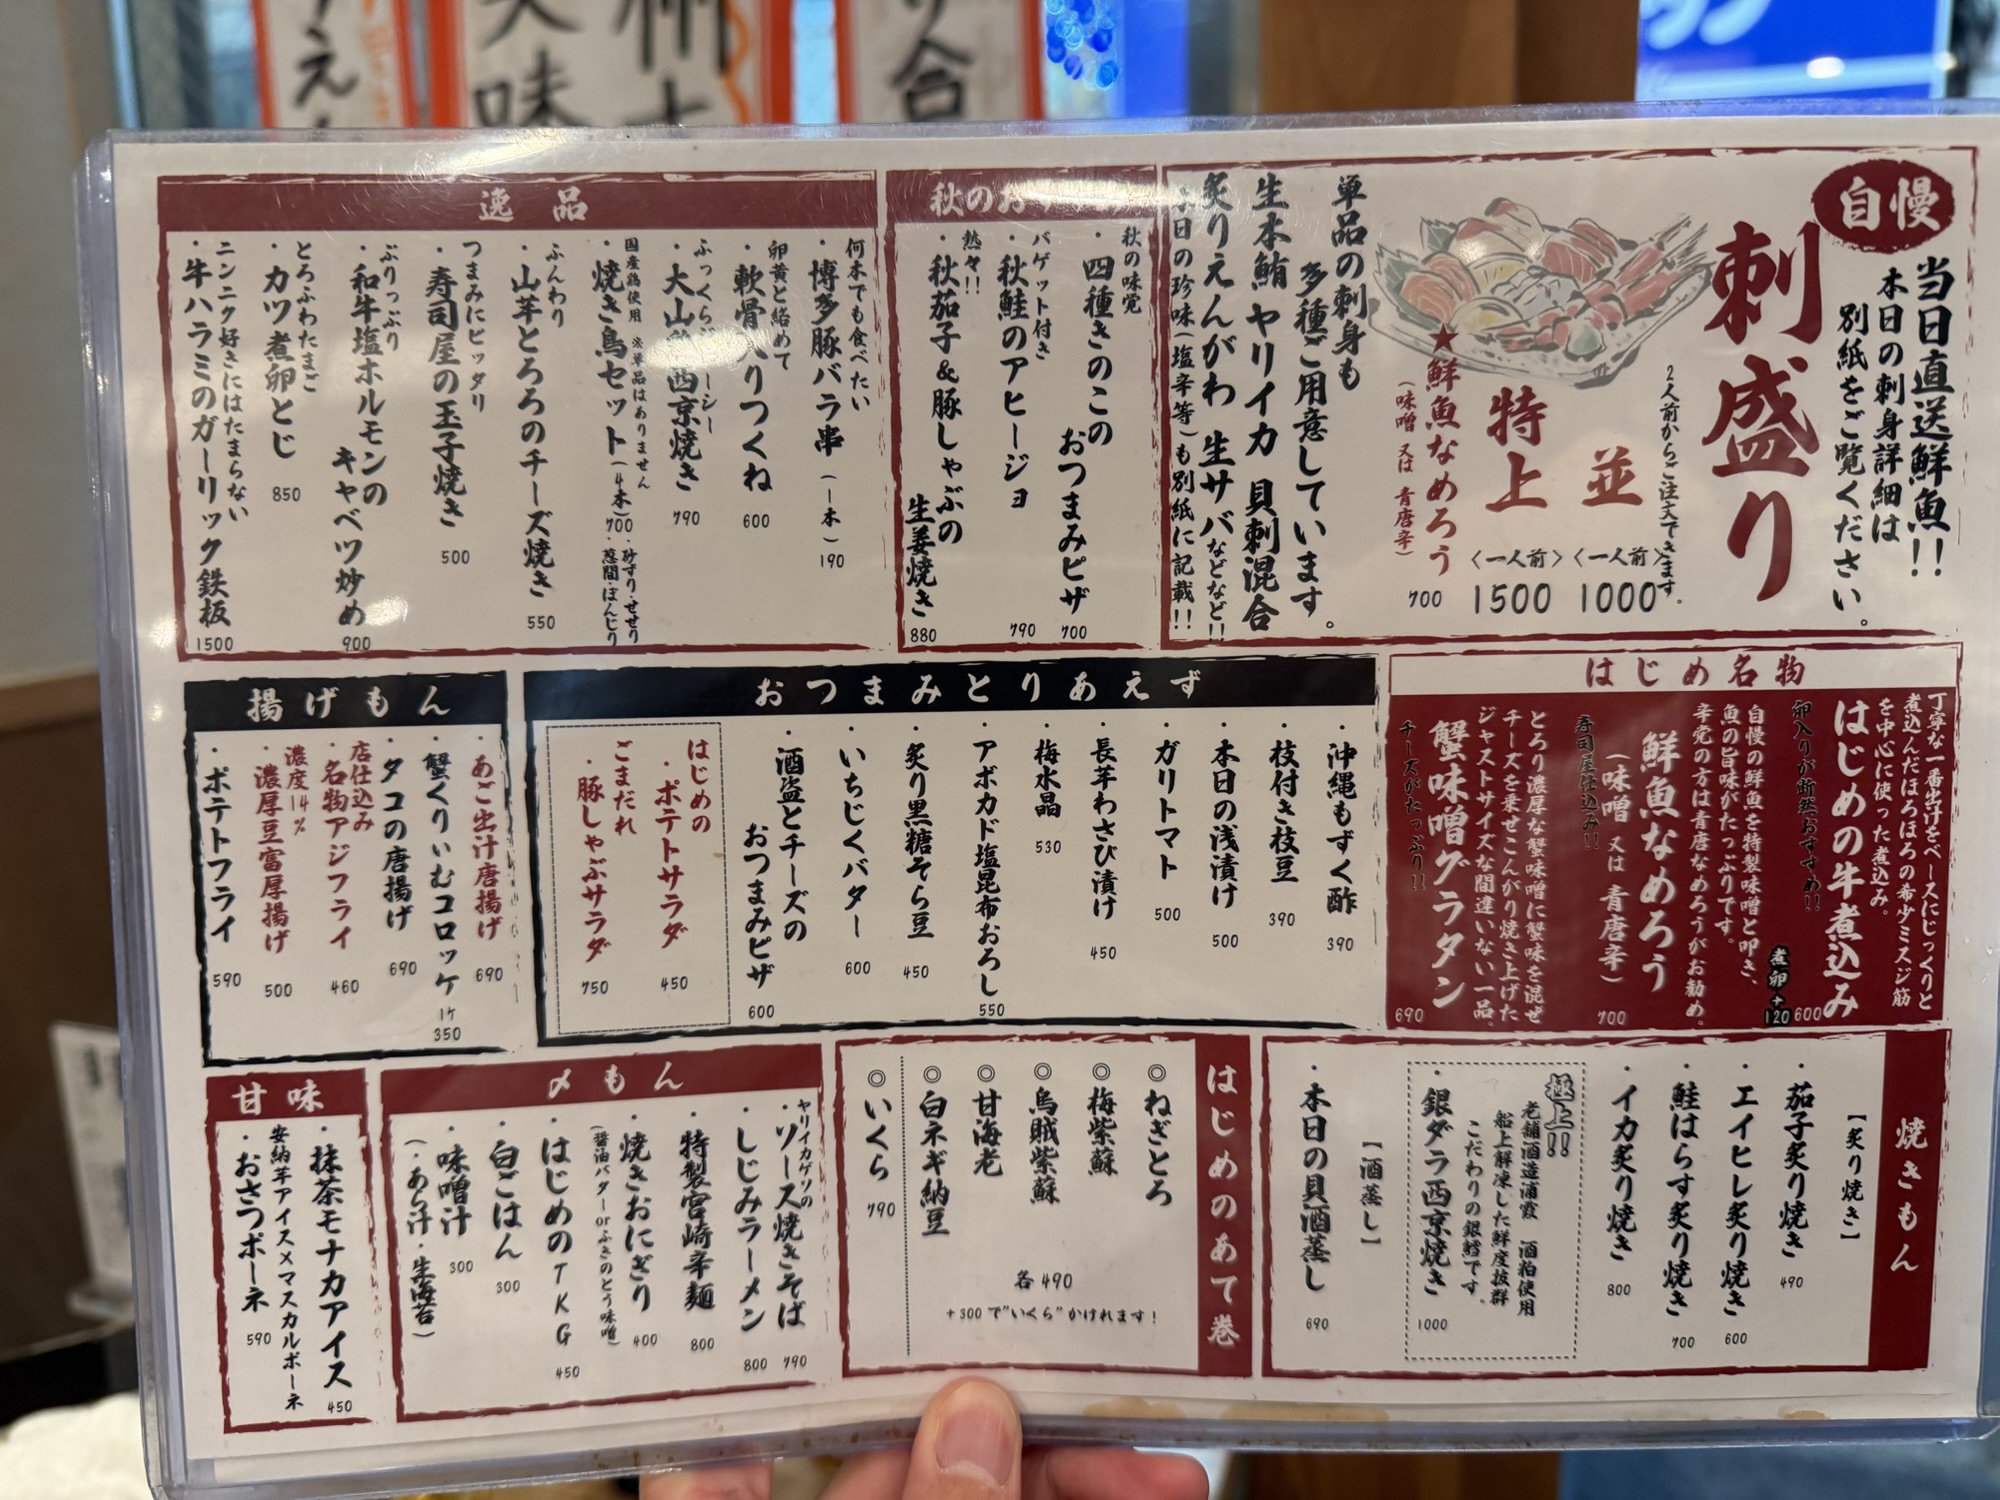 自慢
刺盛り
当日直送鮮魚!!
本日の刺身詳細は
別紙をご覧ください。
2人前からご注文できます。
並 〈一人前〉 1000
特上 〈一人前〉 1500
★鮮魚なめろう 700
(味噌 又は 青唐辛)
単品の刺身も
多種ご用意しています。
生本鮪 ヤリイカ 貝刺混合
炙りえんがわ 生サバなどなど!!
本日の珍味(塩辛等)も別紙に記載!!
秋のお
秋の味覚
・四種きのこの
おつまみピザ 700
バゲット付き
・秋鮭のアヒージョ 790
熱々!!
・秋茄子&豚しゃぶの
生姜焼き 880
逸品
何本でも食べたい
・博多豚バラ串(一本) 190
卵黄と絡めて
・軟骨入りつくね 600
ふっくらジューシー
・大山鶏西京焼き 790
国産鶏使用 ※単品はありません
・焼き鳥セット(4本) 700
・砂ずり・せせり
・葱間・ぼんじり
ふんわり
・山芋とろろのチーズ焼き 550
つまみにピッタリ
・寿司屋の玉子焼き 500
ぷりっぷり
・和牛塩ホルモンの
キャベツ炒め 900
とろふわたまご
・カツ煮卵とじ 850
ニンニク好きにはたまらない
・牛ハラミのガーリック鉄板 1500
はじめ名物
丁寧な一番出汁をベースにじっくりと
煮込んだほろほろの希少ミスジ筋
を中心に使った煮込み。
はじめの牛煮込み 600
卵入りが断然おすすめ!!
煮卵+120
自慢の鮮魚を特製味噌と叩き、
魚の旨味がたっぷりです。
辛党の方は青唐なめろうがお勧め。
鮮魚なめろう
(味噌 又は 青唐辛) 700
寿司屋仕込み!!
とろり濃厚な蟹味噌に蟹味を混ぜ
チーズを乗せこんがり焼き上げた
ジャストサイズな間違いない一品。
蟹味噌グラタン 690
チーズがたっぷり!!
おつまみとりあえず
・沖縄もずく酢 390
・枝付き枝豆 390
・本日の浅漬け 500
・ガリトマト 500
・長芋わさび漬け 450
・梅水晶 530
・アボカド塩昆布おろし 550
・炙り黒糖そら豆 450
・いちじくバター 600
・酒盗とチーズの
おつまみピザ 600
はじめの
・ポテトサラダ 450
ごまだれ
・豚しゃぶサラダ 750
揚げもん
・あご出汁唐揚げ 690
・蟹くりぃむコロッケ 1ケ 350
・タコの唐揚げ 690
店仕込み
・名物アジフライ 460
濃度14%
・濃厚豆富厚揚げ 500
・ポテトフライ 590
焼きもん
【炙り焼き】
・茄子炙り焼き 490
・エイヒレ炙り焼き 600
・鮭はらす炙り焼き 700
・イカ炙り焼き 800
極上!!
老舗酒造浦霞 酒粕使用
船上解凍した鮮度抜群
こだわりの銀鱈です。
・銀ダラ西京焼き 1000
【酒蒸し】
・本日の貝酒蒸し 690
はじめのあて巻
◎ねぎとろ
◎梅紫蘇
◎烏賊紫蘇
◎甘海老
◎白ネギ納豆
各490
+300で"いくら"かけれます!
◎いくら 790
〆もん
ヤリイカゲソの
・ソース焼きそば 790
・しじみラーメン 800
・特製宮崎辛麺 800
・焼きおにぎり 400
(醤油バターorふきのとう味噌)
・はじめのTKG 450
・白ごはん 300
・味噌汁 300
(・あら汁・生海苔)
甘味
・抹茶モナカアイス 450
安納芋アイス×マスカルポーネ
・おさつポーネ 590